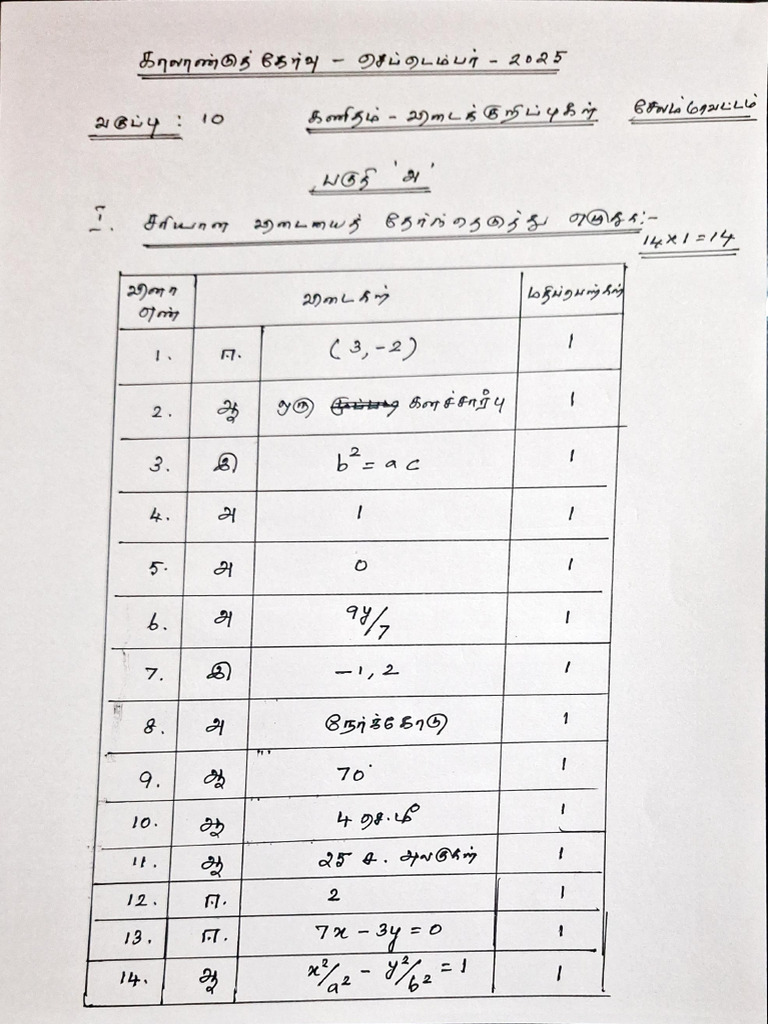 காலாண்டுத் தேர்வு - செப்டம்பர் - 2025
வகுப்பு : 10 கணிதம் - விடைக்குறிப்புகள் சேலம் மாவட்டம்
பகுதி 'அ'
I. சரியான விடையைத் தேர்ந்தெடுத்து எழுதுக:-
14x1=14
வினா எண் விடைகள் மதிப்பெண்கள்
1. ஈ. (3,-2) 1
2. ஆ ஒரு களச்சார்பு 1
3. இ b² = ac 1
4. அ 1 1
5. அ 0 1
6. அ 9y/7 1
7. இ -1, 2 1
8. அ நேர்க்கோடு 1
9. ஆ 70° 1
10. ஆ 4 செ.மீ 1
11. ஆ 25 ச. அலகுகள் 1
12. ஈ. 2 1
13. ஈ. 7x - 3y = 0 1
14. ஆ x²/a² - y²/b² = 1 1